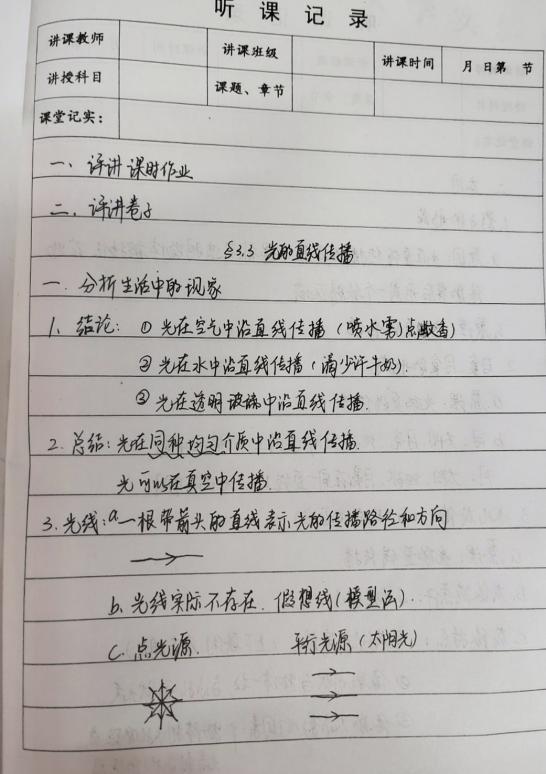 听课记录
讲课教师 讲课班级 讲课时间 月 日第 节
讲授科目 课题、章节
课堂记实：
一、评讲课时作业
二、评讲卷子
§3.3 光的直线传播
一. 分析生活中的现象
1. 结论：① 光在空气中沿直线传播（喷水雾）点蚊香
② 光在水中沿直线传播（滴少许牛奶）.
③ 光在透明玻璃中沿直线传播.
2. 总结：光在同种均匀介质中沿直线传播.
光可以在真空中传播.
3. 光线：a. 一根带箭头的直线表示光的传播路径和方向
b. 光线实际不存在. 假想线（模型法）.
c. 点光源. 平行光源（太阳光）